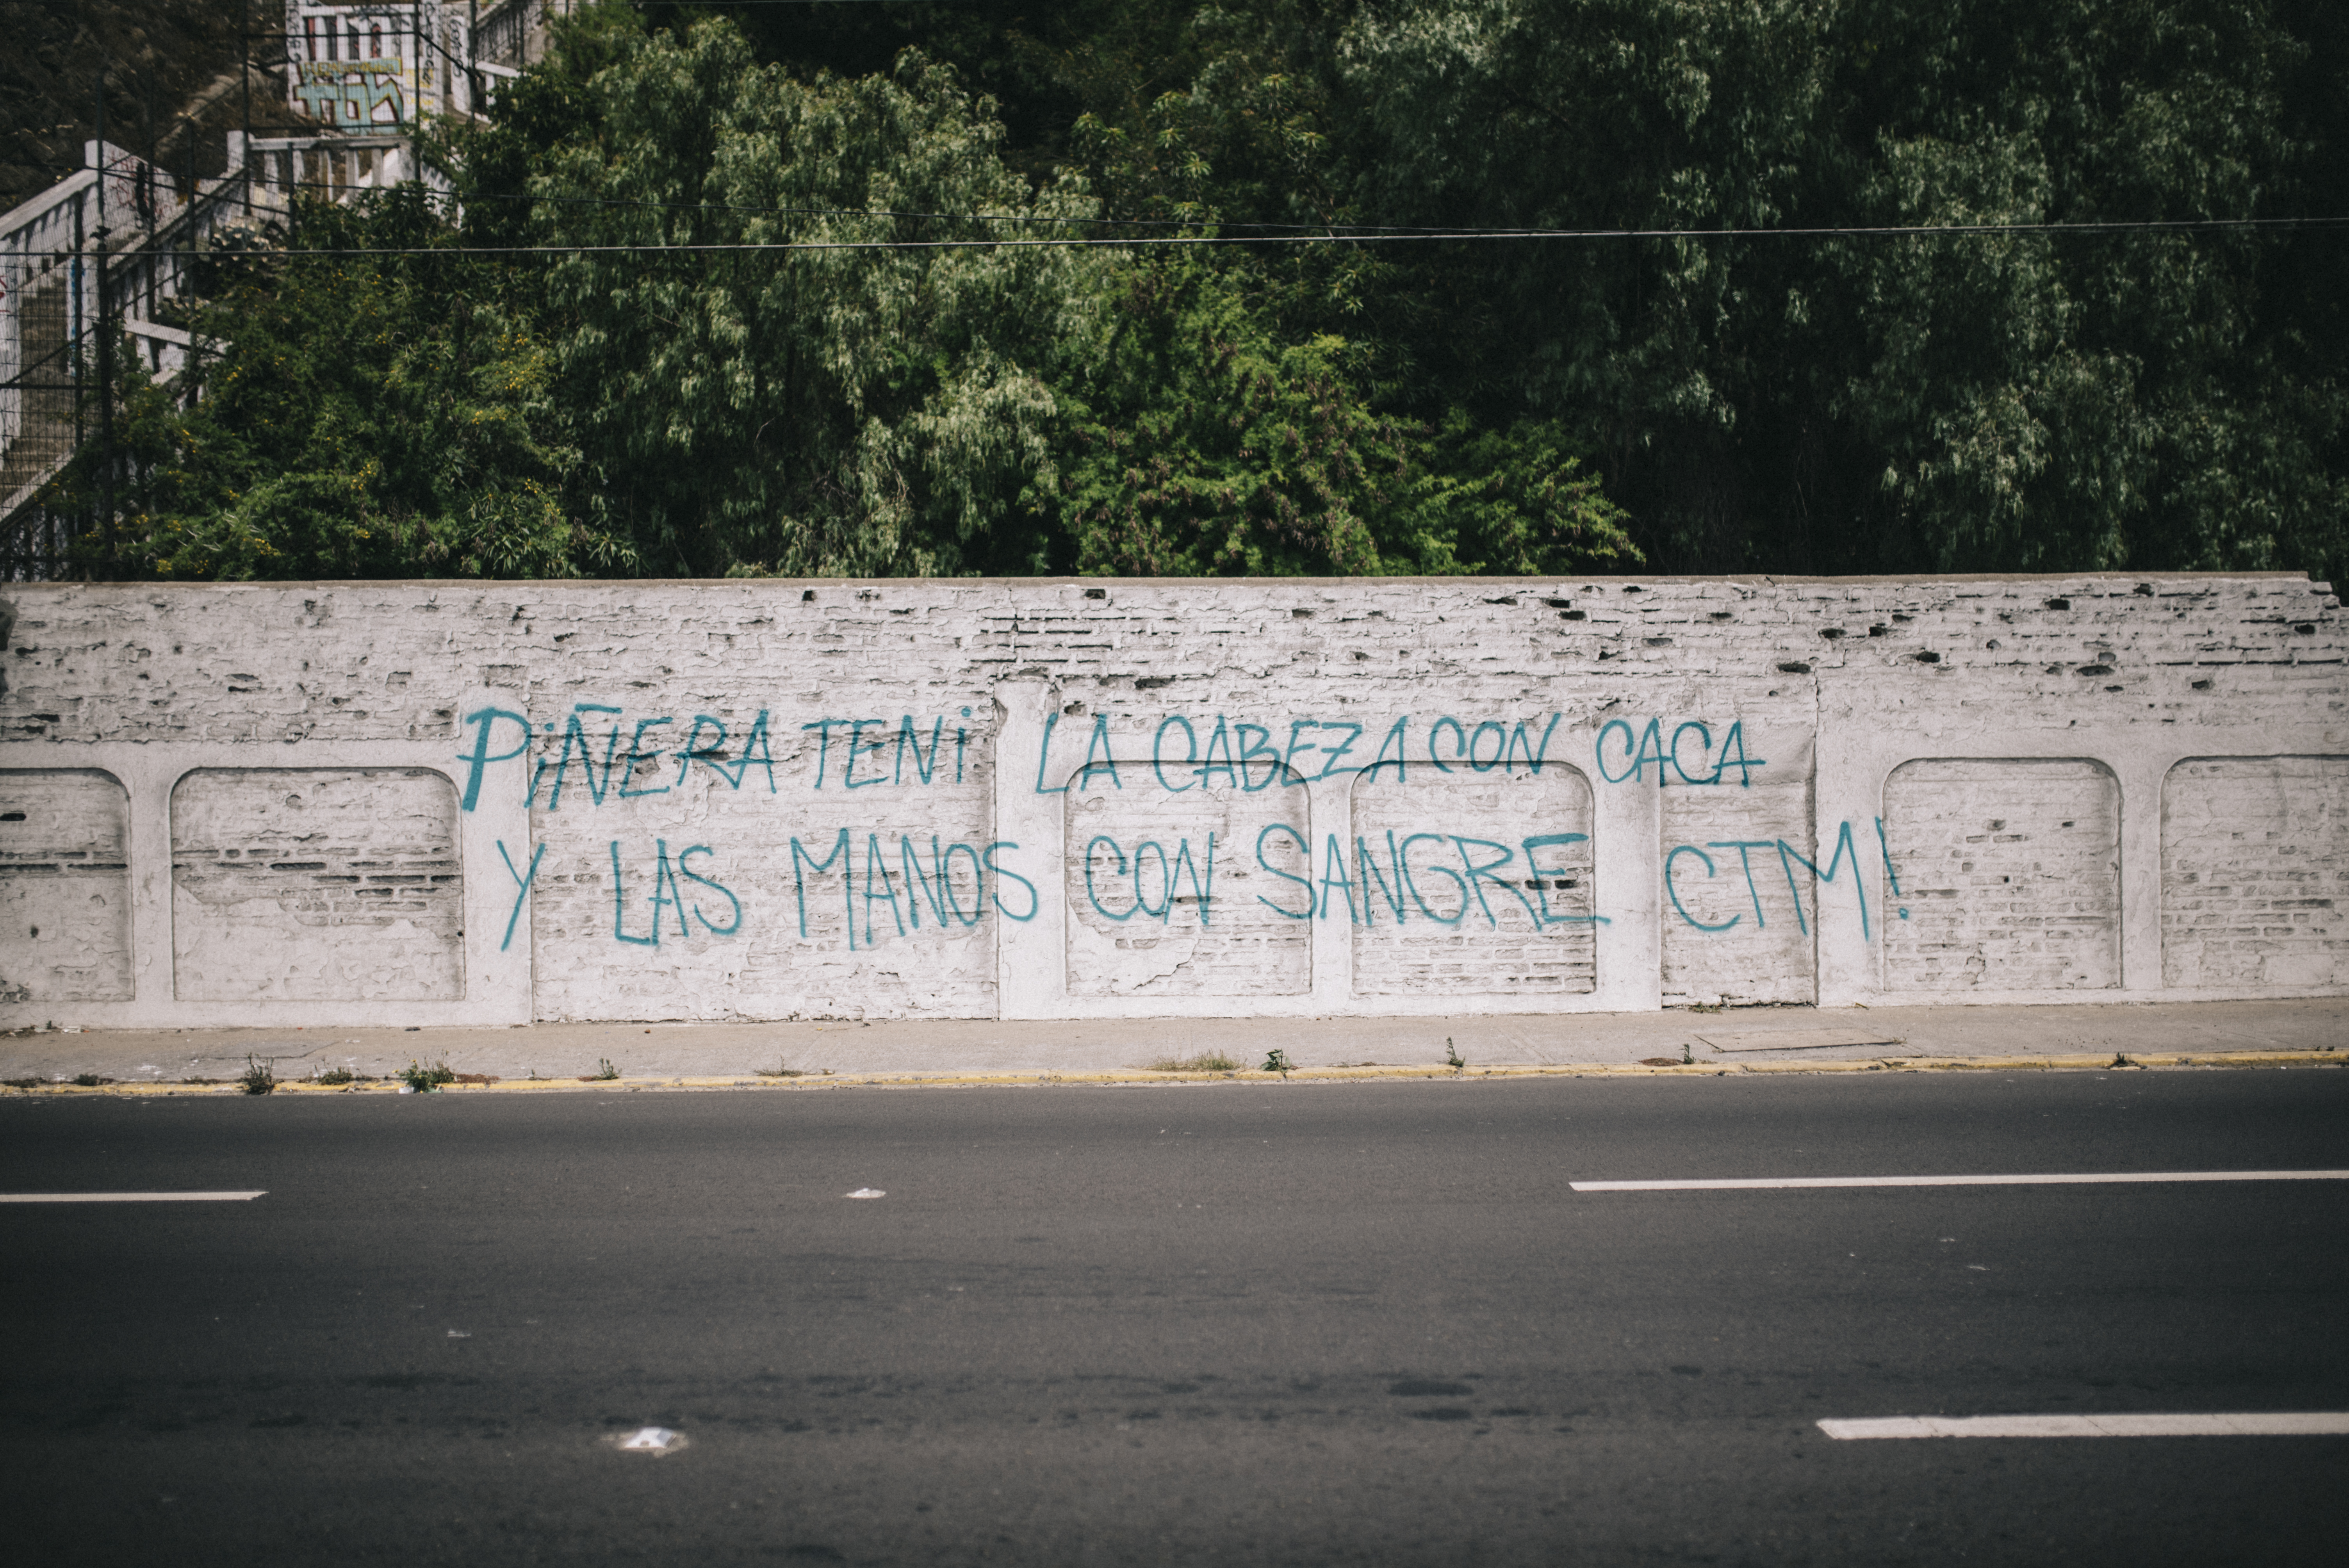 PIÑERA TENI LA CABEZA CON CACA
Y LAS MANOS CON SANGRE CTM!